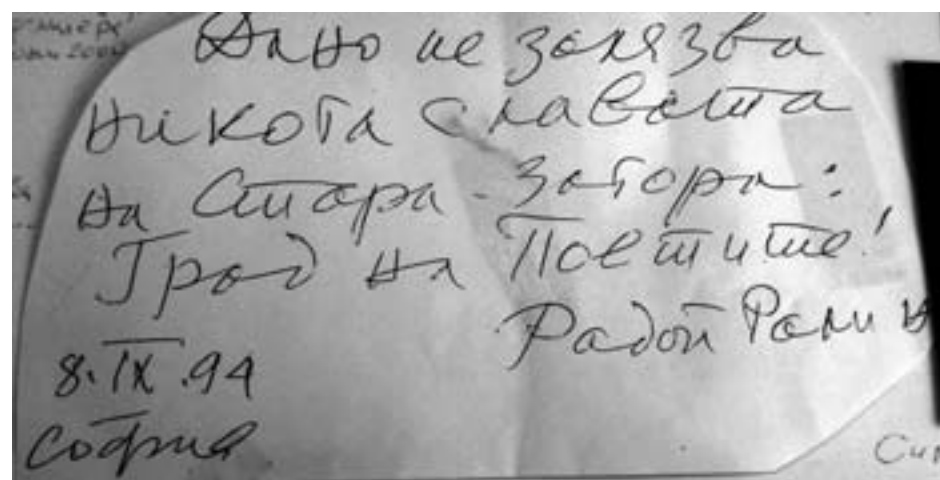 Дано не залязва
никога славата
на Стара-Загора:
Град на Поетите!
Радой Ралин
8.IX.94
София